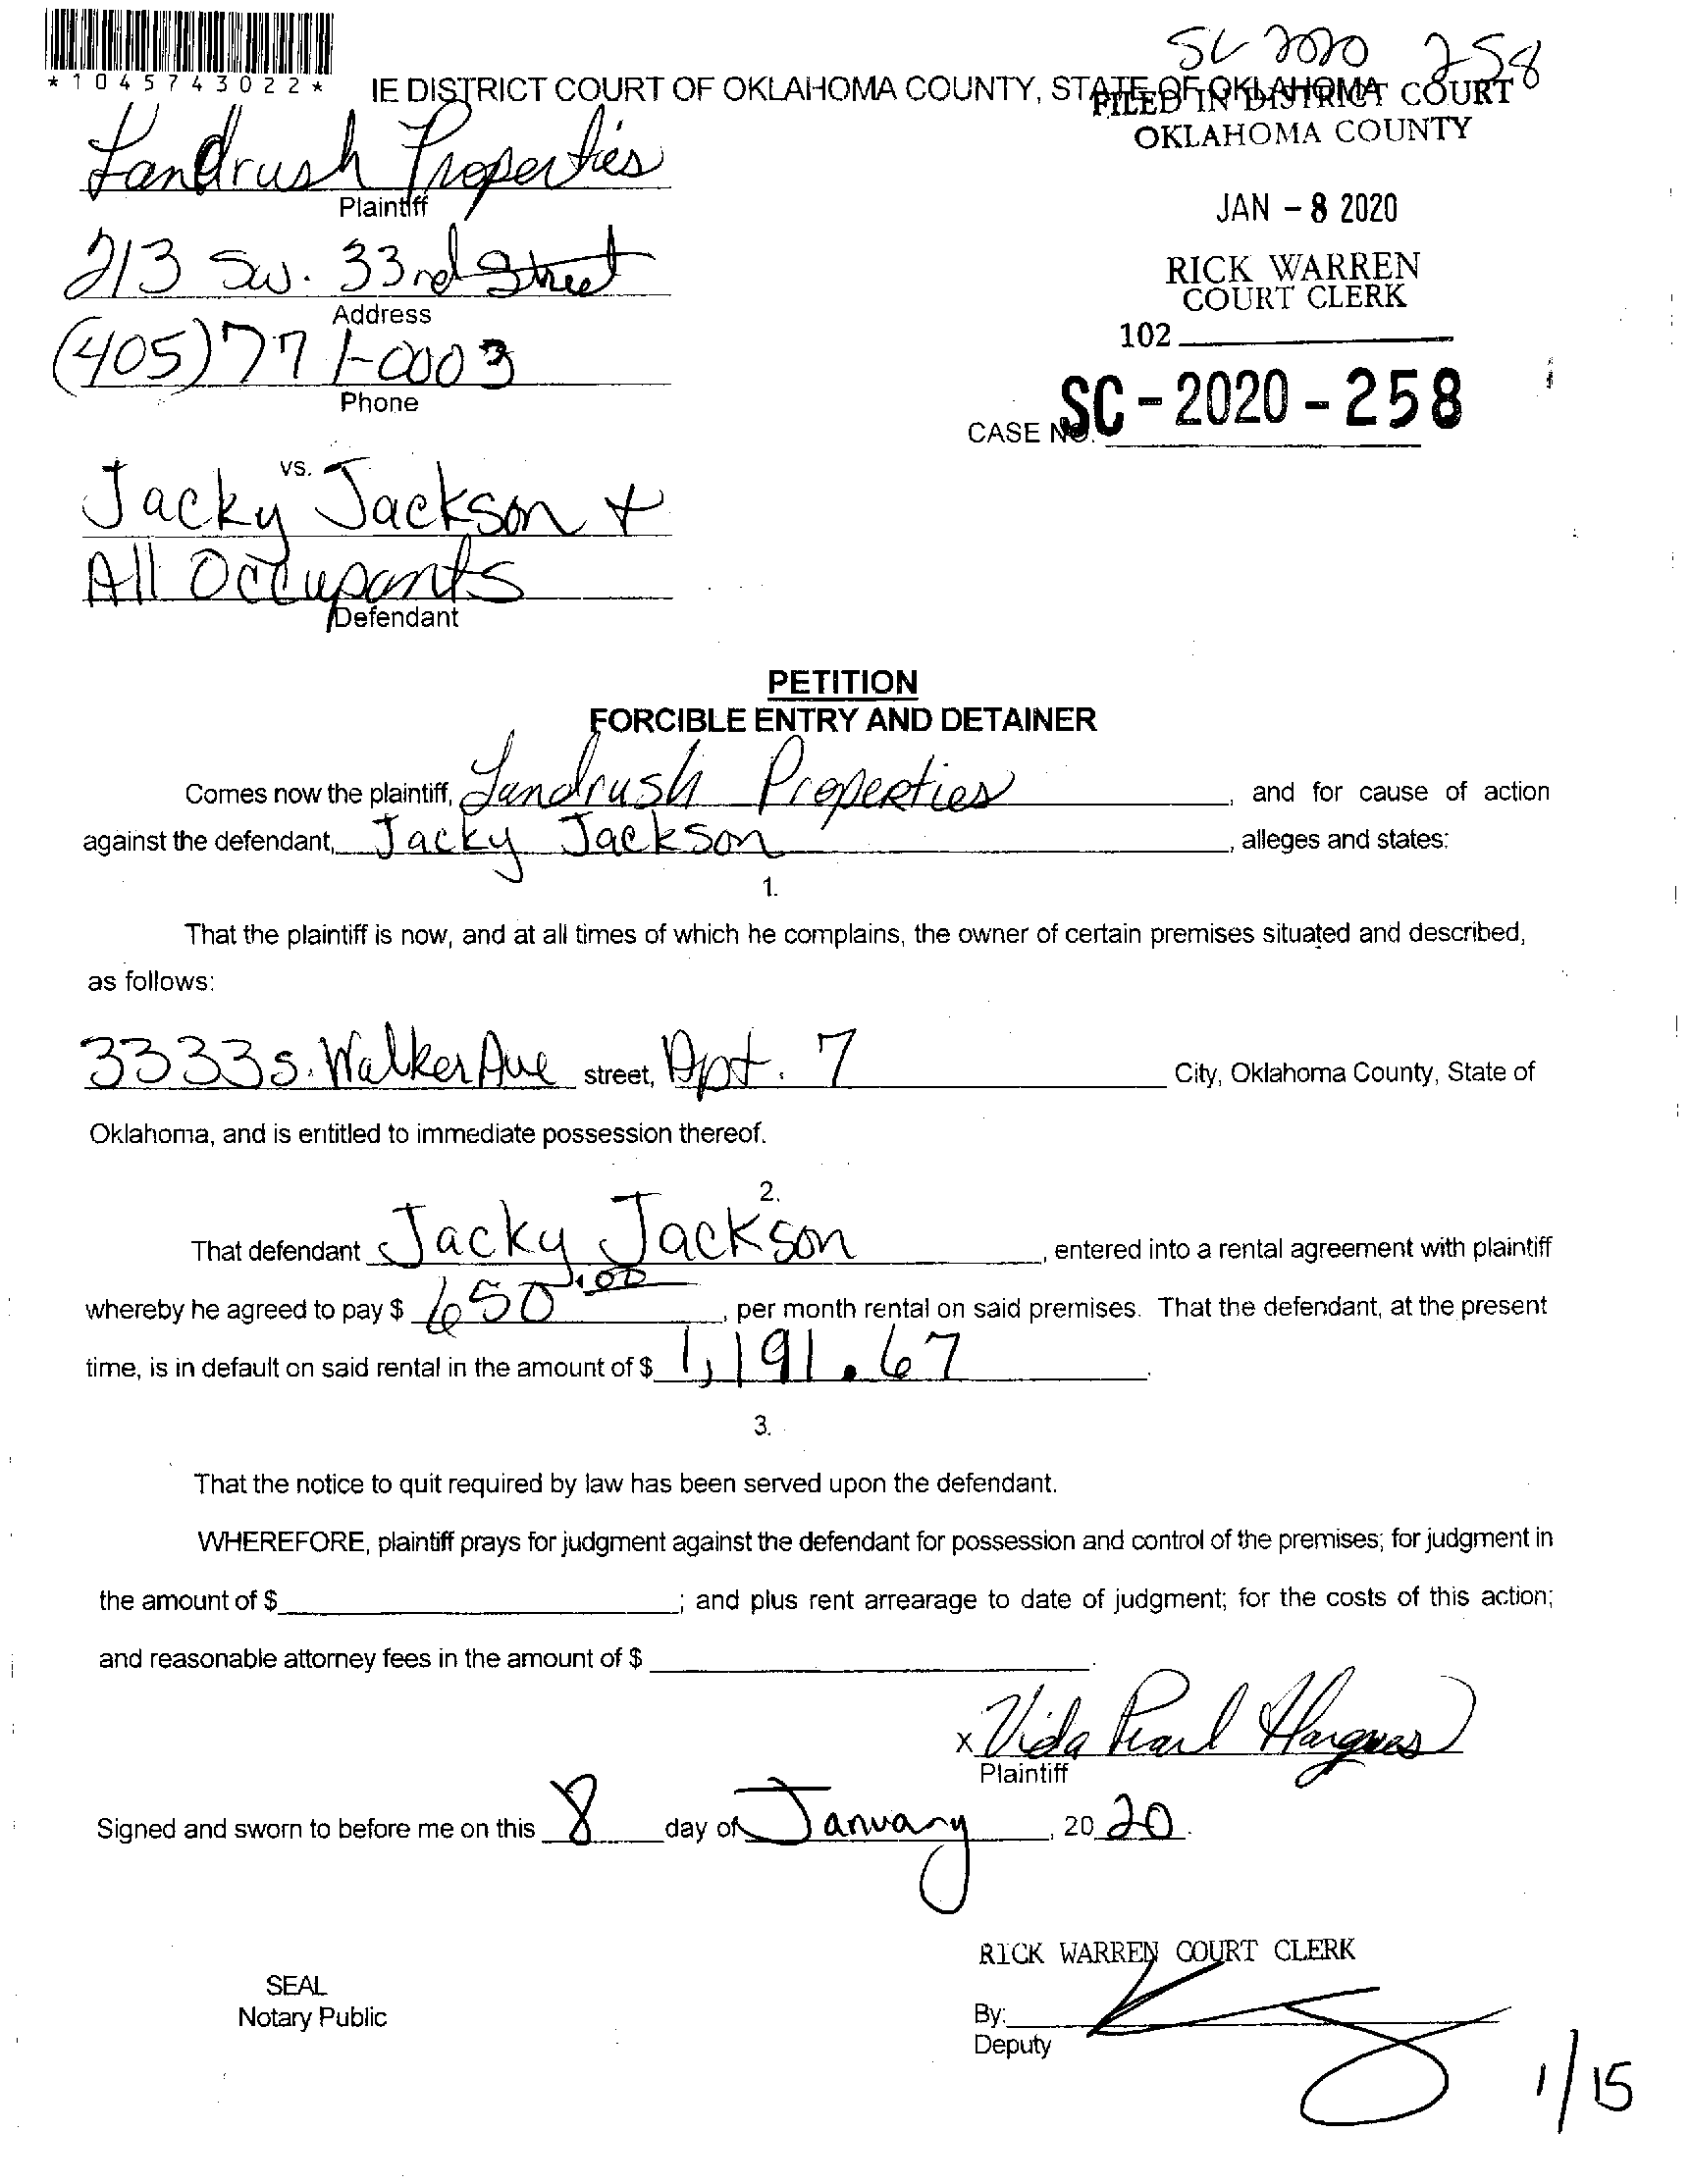 SC 2020 258
*1045743022*
IE DISTRICT COURT OF OKLAHOMA COUNTY, STATE OF OKLAHOMA
FILED IN DISTRICT COURT
OKLAHOMA COUNTY
Landrush Properties
Plaintiff
JAN - 8 2020
213 SW. 33rd Street
Address
RICK WARREN
COURT CLERK
102
(405)771-0003
Phone
CASE NO. SC - 2020 - 258
vs.
Jacky Jackson +
All Occupants
Defendant
PETITION
FORCIBLE ENTRY AND DETAINER
Comes now the plaintiff, Landrush Properties, and for cause of action
against the defendant, Jacky Jackson, alleges and states:
1.
That the plaintiff is now, and at all times of which he complains, the owner of certain premises situated and described,
as follows:
3333 S. Walker Ave street, Apt. 7 City, Oklahoma County, State of
Oklahoma, and is entitled to immediate possession thereof.
2.
That defendant Jacky Jackson, entered into a rental agreement with plaintiff
whereby he agreed to pay $ 650.00, per month rental on said premises. That the defendant, at the present
time, is in default on said rental in the amount of $ 1,191.67.
3.
That the notice to quit required by law has been served upon the defendant.
WHEREFORE, plaintiff prays for judgment against the defendant for possession and control of the premises; for judgment in
the amount of $ ; and plus rent arrearage to date of judgment; for the costs of this action;
and reasonable attorney fees in the amount of $ .
x Vida Pearl Hargues
Plaintiff
Signed and sworn to before me on this 8 day of January, 20 20.
RICK WARREN COURT CLERK
SEAL
Notary Public
By:
Deputy
1/15